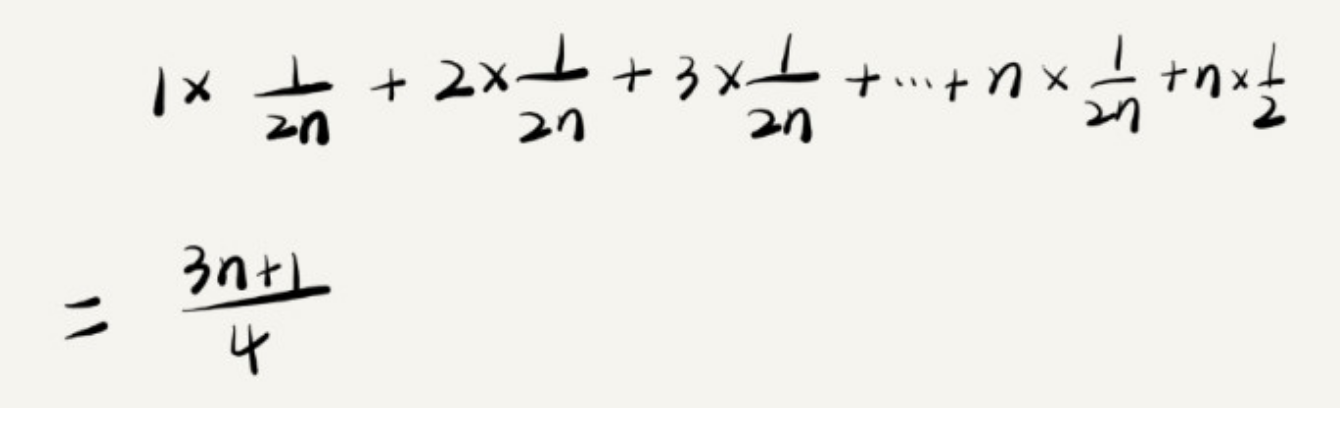 1 × 1/2n + 2 × 1/2n + 3 × 1/2n + ... + n × 1/2n + n × 1/2
= 3n+1/4